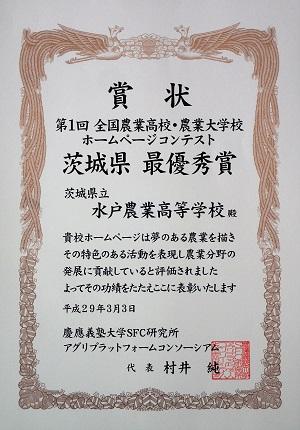 賞状
第1回 全国農業高校・農業大学校
ホームページコンテスト
茨城県 最優秀賞
茨城県立
水戸農業高等学校 殿
貴校ホームページは夢のある農業を描き
その特色のある活動を表現し農業分野の
発展に貢献していると評価されました
よってその功績をたたえここに表彰いたします
平成29年3月3日
慶應義塾大学SFC研究所
アグリプラットフォームコンソーシアム
代表 村井 純